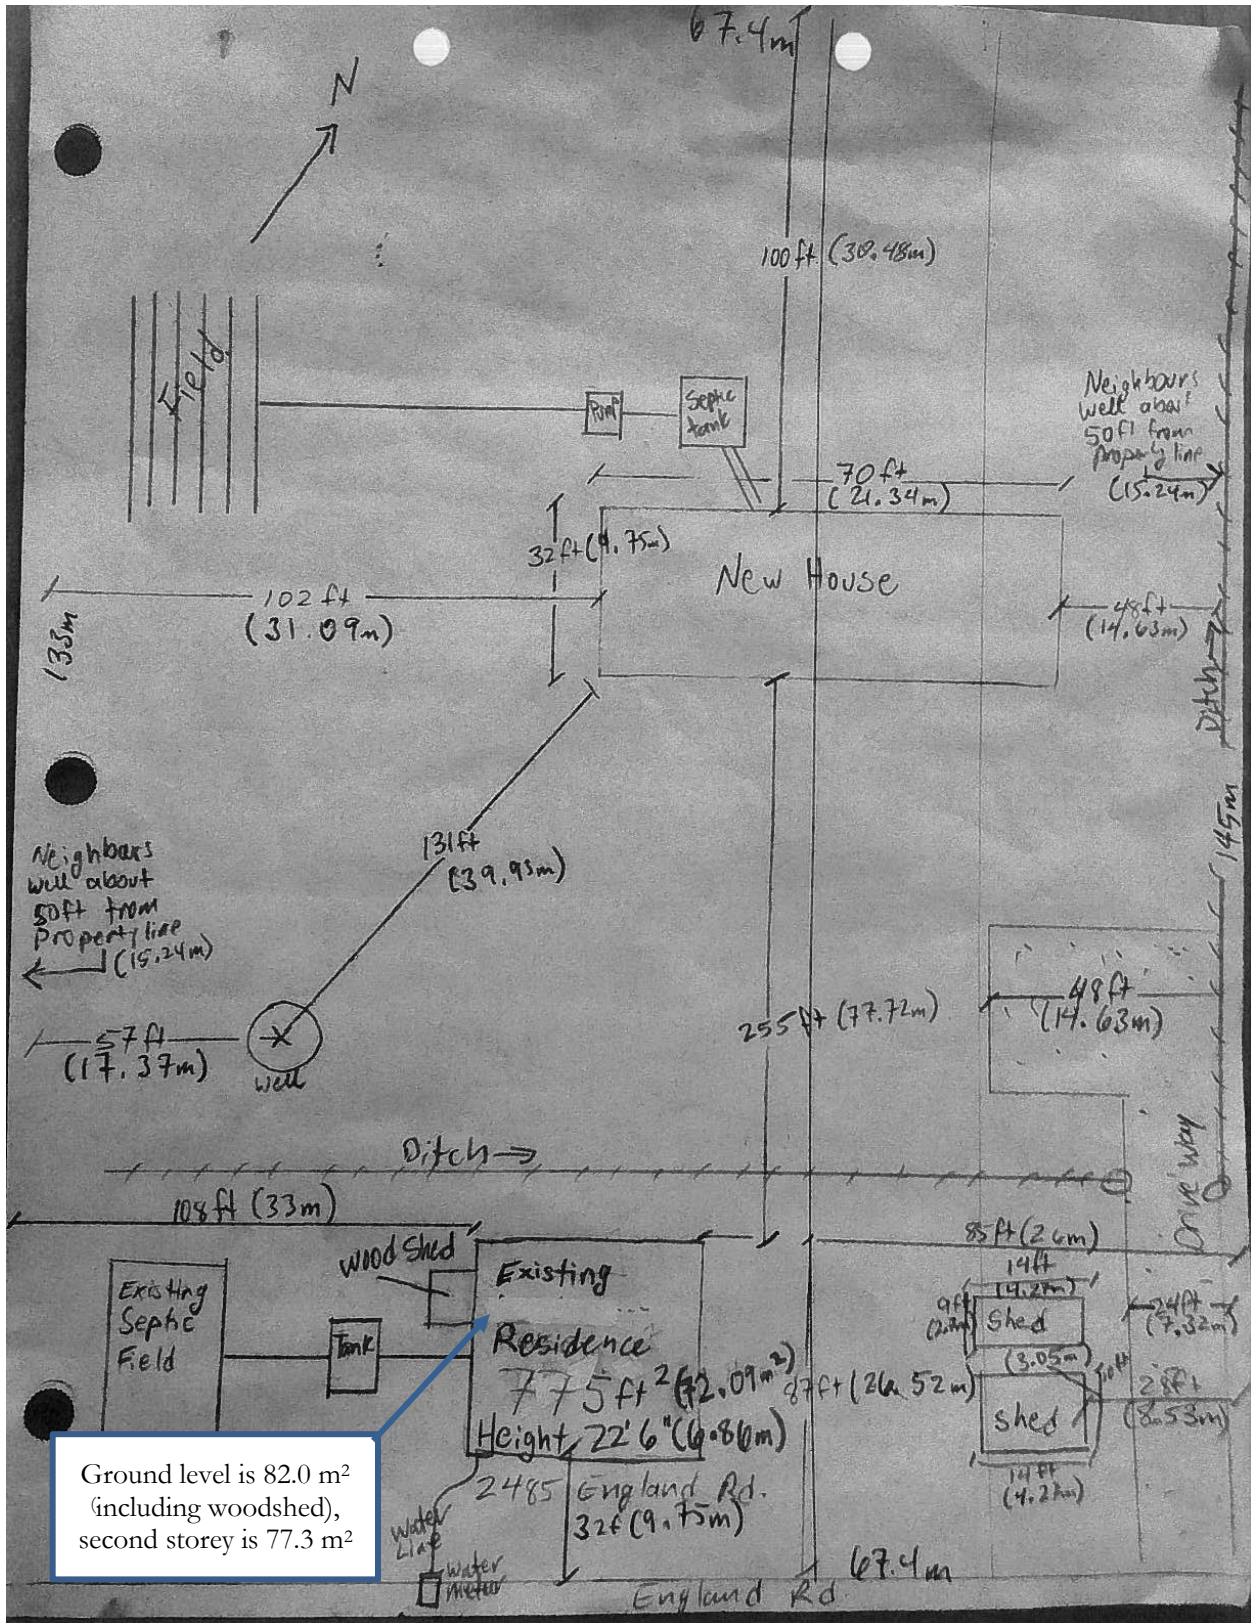 67.4m
N
100ft (30.48m)
Field
Pump
Septic
tank
Neighbours
well about
50ft from
property line
(15.24m)
70ft
(21.34m)
32ft (9.75m)
New House
102 ft
(31.09m)
48ft
(14.63m)
133m
Ditch
145m
131ft
(39.93m)
Neighbours
well about
50ft from
Property line
(15.24m)
57ft
(17.37m)
X
well
255ft (77.72m)
48ft
(14.63m)
Ditch
Drive way
108ft (33m)
85ft (26m)
wood Shed
Existing
Residence
775ft² (72.09m²)
Height 22'6" (6.86m)
Existing
Septic
Field
Tank
14ft
(4.27m)
9ft
Shed
24ft
(7.32m)
(3.05m)
10ft
87ft (26.52m)
28ft
(8.53m)
Shed
14ft
(4.27m)
2485 England Rd.
32f (9.75m)
Water
Line
Water
meter
67.4m
England Rd.
Ground level is 82.0 m²
(including woodshed),
second storey is 77.3 m²